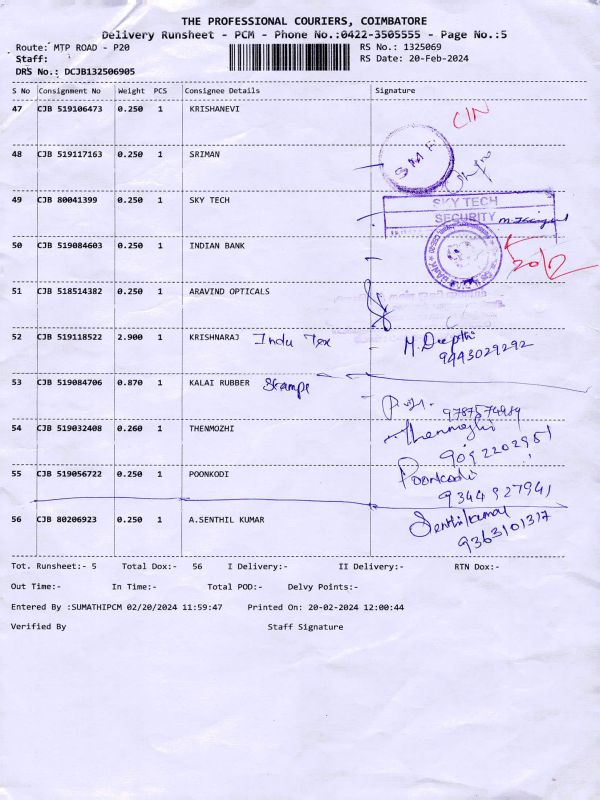 THE PROFESSIONAL COURIERS, COIMBATORE
Delivery Runsheet - PCM - Phone No.:0422-3505555 - Page No.:5
Route: MTP ROAD - P20 RS No.: 1325069
Staff: RS Date: 20-Feb-2024
DRS No.: DCJB132506905
S No Consignment No Weight PCS Consignee Details Signature
47 CJB 519106473 0.250 1 KRISHANEVI
CIN
48 CJB 519117163 0.250 1 SRIMAN
SMF
49 CJB 80041399 0.250 1 SKY TECH
SKY TECH
SECURITY
50 CJB 519084603 0.250 1 INDIAN BANK
20/2
51 CJB 518514382 0.250 1 ARAVIND OPTICALS
52 CJB 519118522 2.900 1 KRISHNARAJ Indu Tex M. Deepthi
9443029292
53 CJB 519084706 0.870 1 KALAI RUBBER Stamps
54 CJB 519032408 0.260 1 THENMOZHI Thenmozhi
9092202951
55 CJB 519056722 0.250 1 POONKODI Poonkodi
9344927941
56 CJB 80206923 0.250 1 A.SENTHIL KUMAR Senthilkumar
9363101317
Tot. Runsheet:- 5 Total Dox:- 56 I Delivery:- II Delivery:- RTN Dox:-
Out Time:- In Time:- Total POD:- Delvy Points:-
Entered By :SUMATHIPCM 02/20/2024 11:59:47 Printed On: 20-02-2024 12:00:44
Verified By Staff Signature